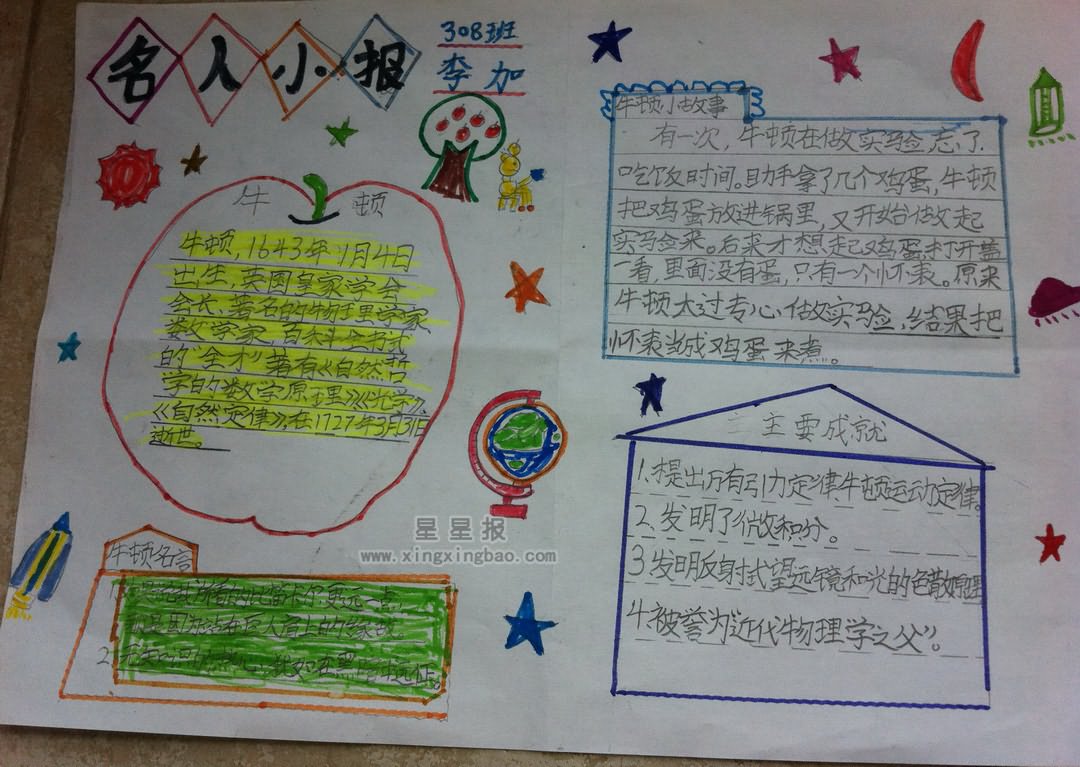 名人小报
308班
李加
牛顿
牛顿,1643年1月4日
出生,英国皇家学会
会长、著名的物理学家、
数学家,百科全书式
的"全才"著有《自然哲
学的数学原理》《光学》、
《自然定律》,在1727年3月31日
逝世。
牛顿名言
牛顿小故事
有一次,牛顿在做实验,忘了
吃饭时间。助手拿了几个鸡蛋,牛顿
把鸡蛋放进锅里,又开始做起
实验来。后来才想起鸡蛋,打开盖
一看,里面没有蛋,只有一个怀表。原来
牛顿太过专心做实验,结果把
怀表当成鸡蛋来煮。
主要成就
1.提出万有引力定律、牛顿运动定律。
2.发明了微积分。
3.发明反射式望远镜和光的色散原理
4.被誉为"近代物理学之父"。
星星报
www.xingxingbao.com